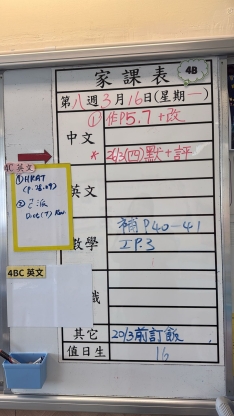 家課表
4B
第八週3月16日(星期一)
中文
① 作P.5.7+改
* 26/3(四)默+評
4C 英文
①HRAT
②已派
英文
數學
補P40-41
工P.3
4BC 英文
其它
20/3前訂飯
值日生
16